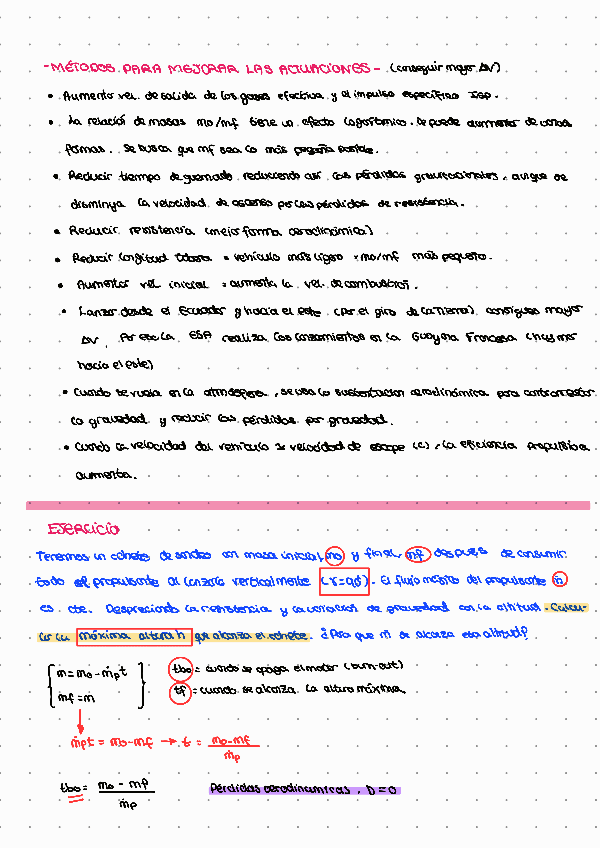 -MÉTODOS PARA MEJORAR LAS ACTUACIONES- (conseguir mayor ΔV)
• Aumento vel. de salida de los gases efectiva y el impulso específico ISP.
• La relación de masas mo/mf tiene un efecto logarítmico. Se puede aumentar de varias
formas. Se busca que mf sea lo más pequeña posible.
• Reducir tiempo de quemado reduciendo así las pérdidas gravitacionales, aunque se
disminuya la velocidad de ascenso por las pérdidas de resistencia.
• Reducir resistencia (mejor forma aerodinámica)
• Reducir longitud tobera = vehículo más ligero = mo/mf más pequeño.
• Aumentar vel inicial = aumenta la vel. de combustión.
• Lanzar desde el Ecuador y hacia el este (por el giro de la tierra) consigues mayor
ΔV. Por eso la ESA realiza los lanzamientos en la Guayana Francesa (hay mar
hacia el este)
• Cuando se vuela en la atmósfera, se usa la sustentación aerodinámica para contrarrestar
la gravedad y reducir las pérdidas por gravedad.
• Cuando la velocidad del vehículo ≈ velocidad de escape (c), la eficiencia propulsiva
aumenta.
EJERCICIO
Tenemos un cohete de sondeo con masa inicial, mo y final, mf después de consumir
todo el propulsante al lanzarlo verticalmente
El flujo másico del propulsante ṁ
es cte. Despreciando la resistencia y la variación de gravedad con la altitud. Calcu-
lar la máxima altura h que alcanza el cohete. ¿Para que ṁ se alcanza esa altitud?
m = mo - ṁpt
tbo = cuando se apaga el motor (burn-out)
mf = m
tf = cuando se alcanza la altura máxima.
ṁpt = mo-mf → t = mo-mf / ṁp
tbo = mo - mf / ṁp
Pérdidas aerodinámicas, D=0